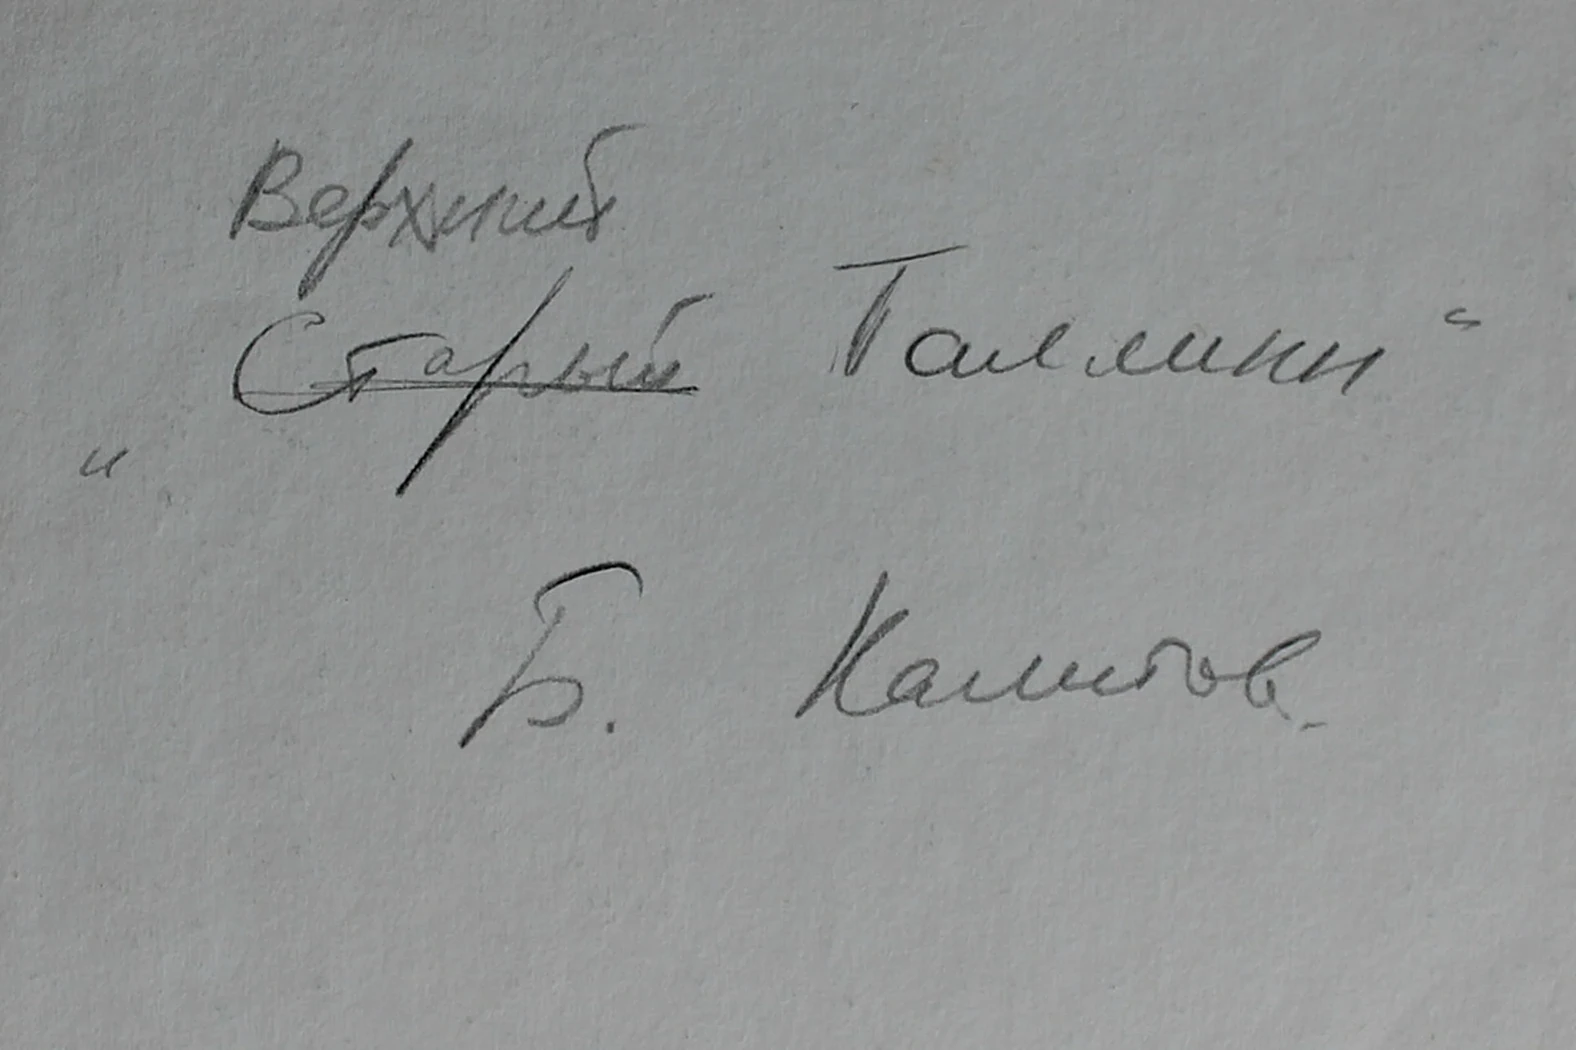 Верхний
„ Старый Таллинн “
Б. Калитов.